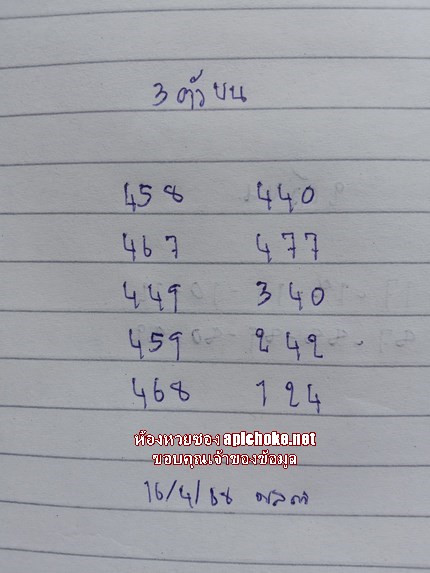 3 ตัวบน
458 440
467 477
449 340
459 242
468 124
ห้องหวยซอง apichoke.net
ขอบคุณเจ้าของข้อมูล
16/4/68